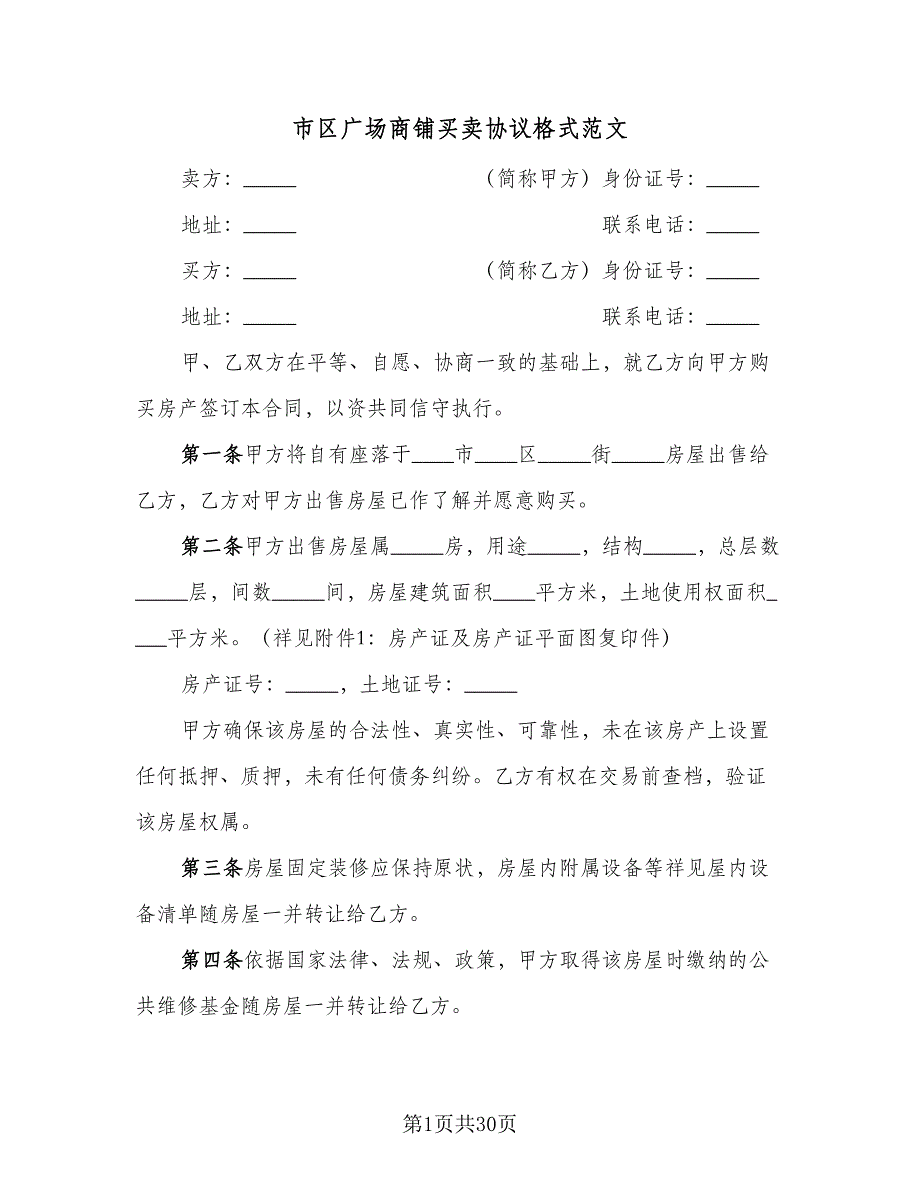 市区广场商铺买卖协议格式范文
卖方：_____ （简称甲方）身份证号：_____
地址：_____ 联系电话：_____
买方：_____ （简称乙方）身份证号：_____
地址：_____ 联系电话：_____
甲、乙双方在平等、自愿、协商一致的基础上，就乙方向甲方购
买房产签订本合同，以资共同信守执行。
第一条甲方将自有座落于____市____区_____街_____房屋出售给
乙方，乙方对甲方出售房屋已作了解并愿意购买。
第二条甲方出售房屋属_____房，用途_____，结构_____，总层数
_____层，间数_____间，房屋建筑面积____平方米，土地使用权面积_
___平方米。（祥见附件1：房产证及房产证平面图复印件）
房产证号：_____，土地证号：_____
甲方确保该房屋的合法性、真实性、可靠性，未在该房产上设置
任何抵押、质押，未有任何债务纠纷。乙方有权在交易前查档，验证
该房屋权属。
第三条房屋固定装修应保持原状，房屋内附属设备等祥见屋内设
备清单随房屋一并转让给乙方。
第四条依据国家法律、法规、政策，甲方取得该房屋时缴纳的公
共维修基金随房屋一并转让给乙方。
第1页共30页